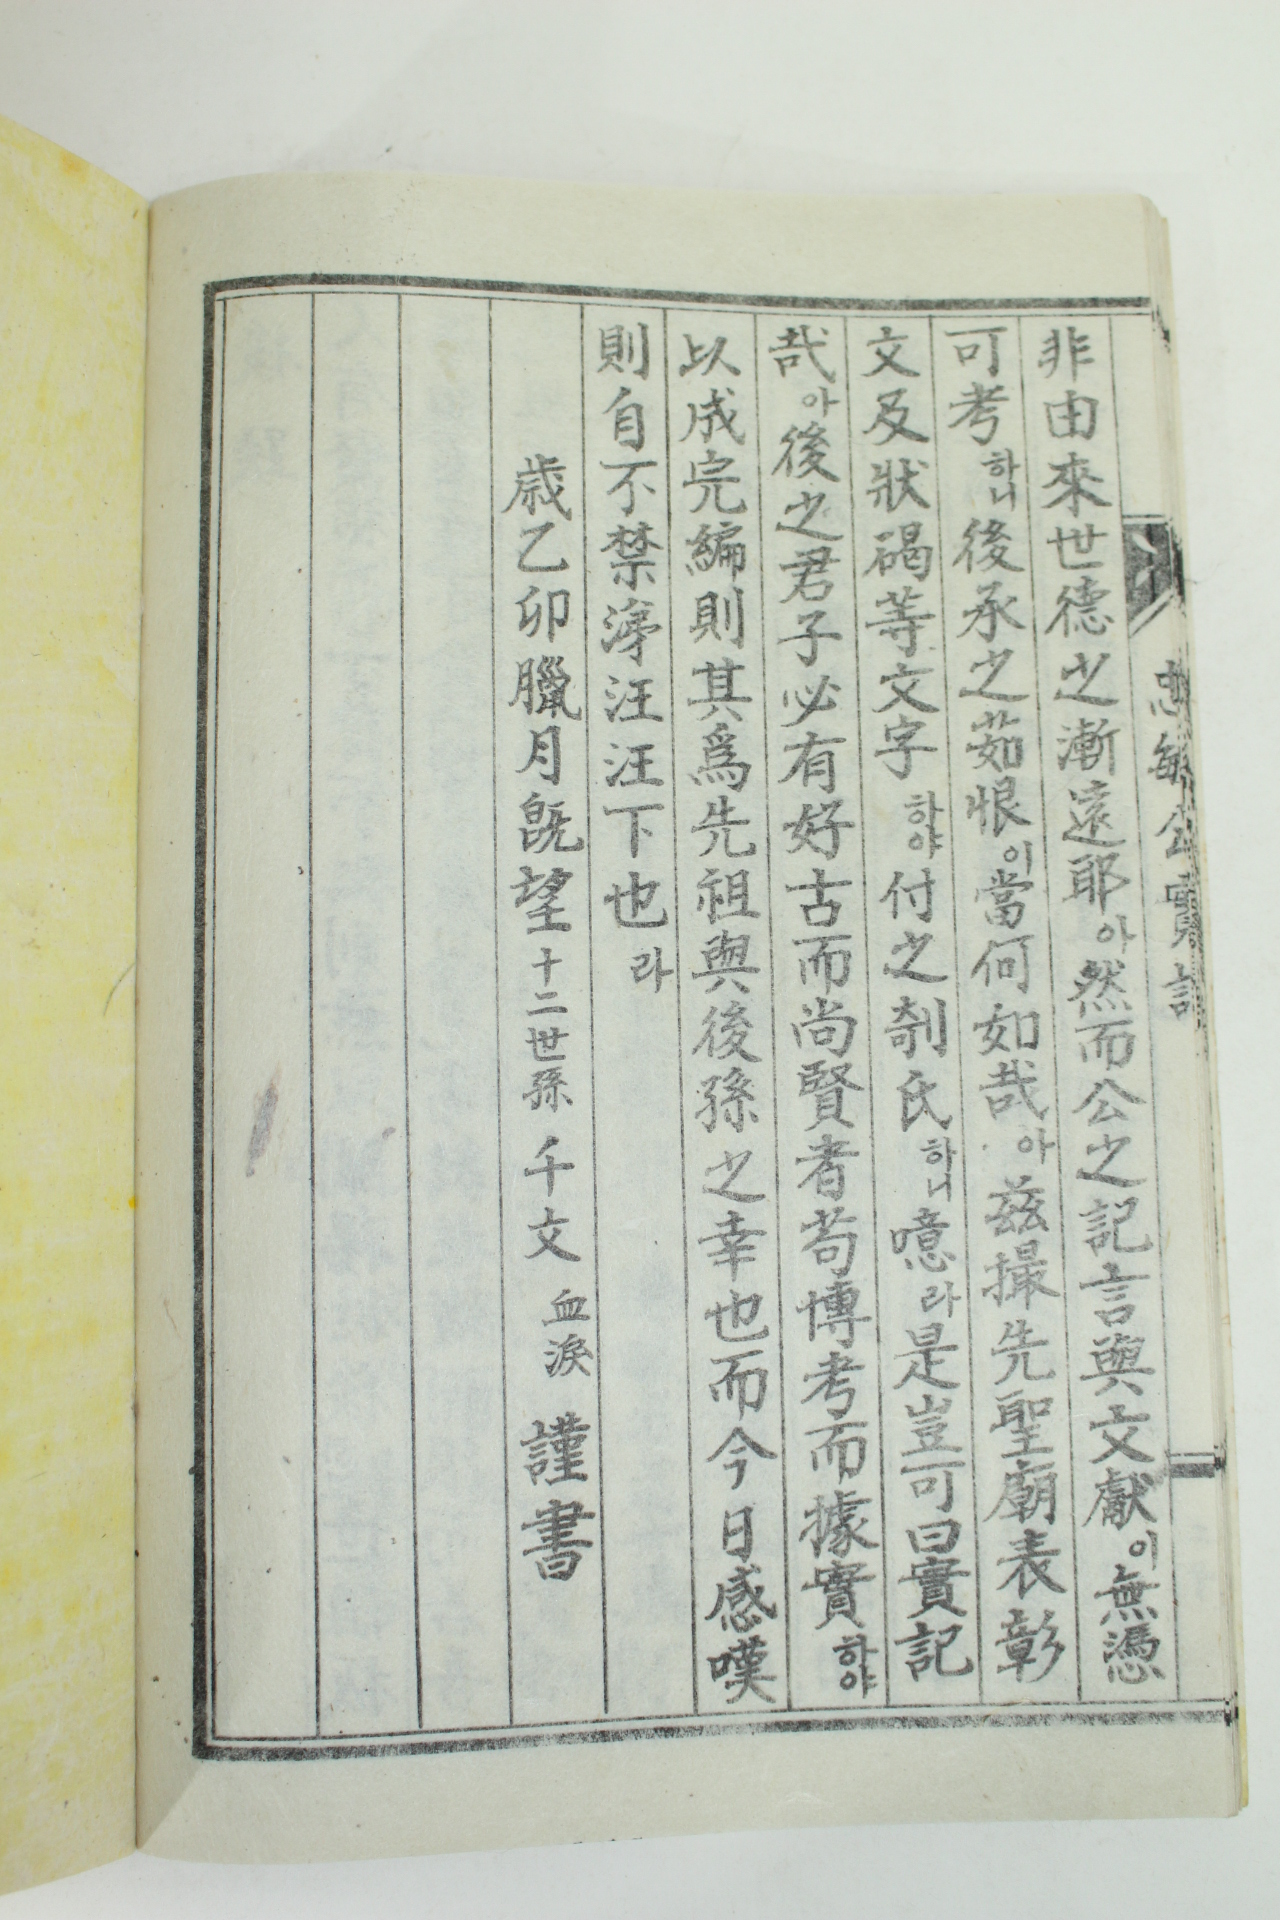 忠敏公實記
非由來世德之漸遠耶아然而公之記言與文獻이無憑
可考하니後承之茹恨이當何如哉아茲撮先聖廟表彰
文及狀碣等文字하야付之剞氏하니噫라是豈可曰實記
哉아後之君子必有好古而尚賢者苟博考而據實하야
以成完編則其爲先祖與後孫之幸也而今日感嘆
則自不禁涕汪汪下也라
歲乙卯臘月旣望十二世孫千文血淚謹書